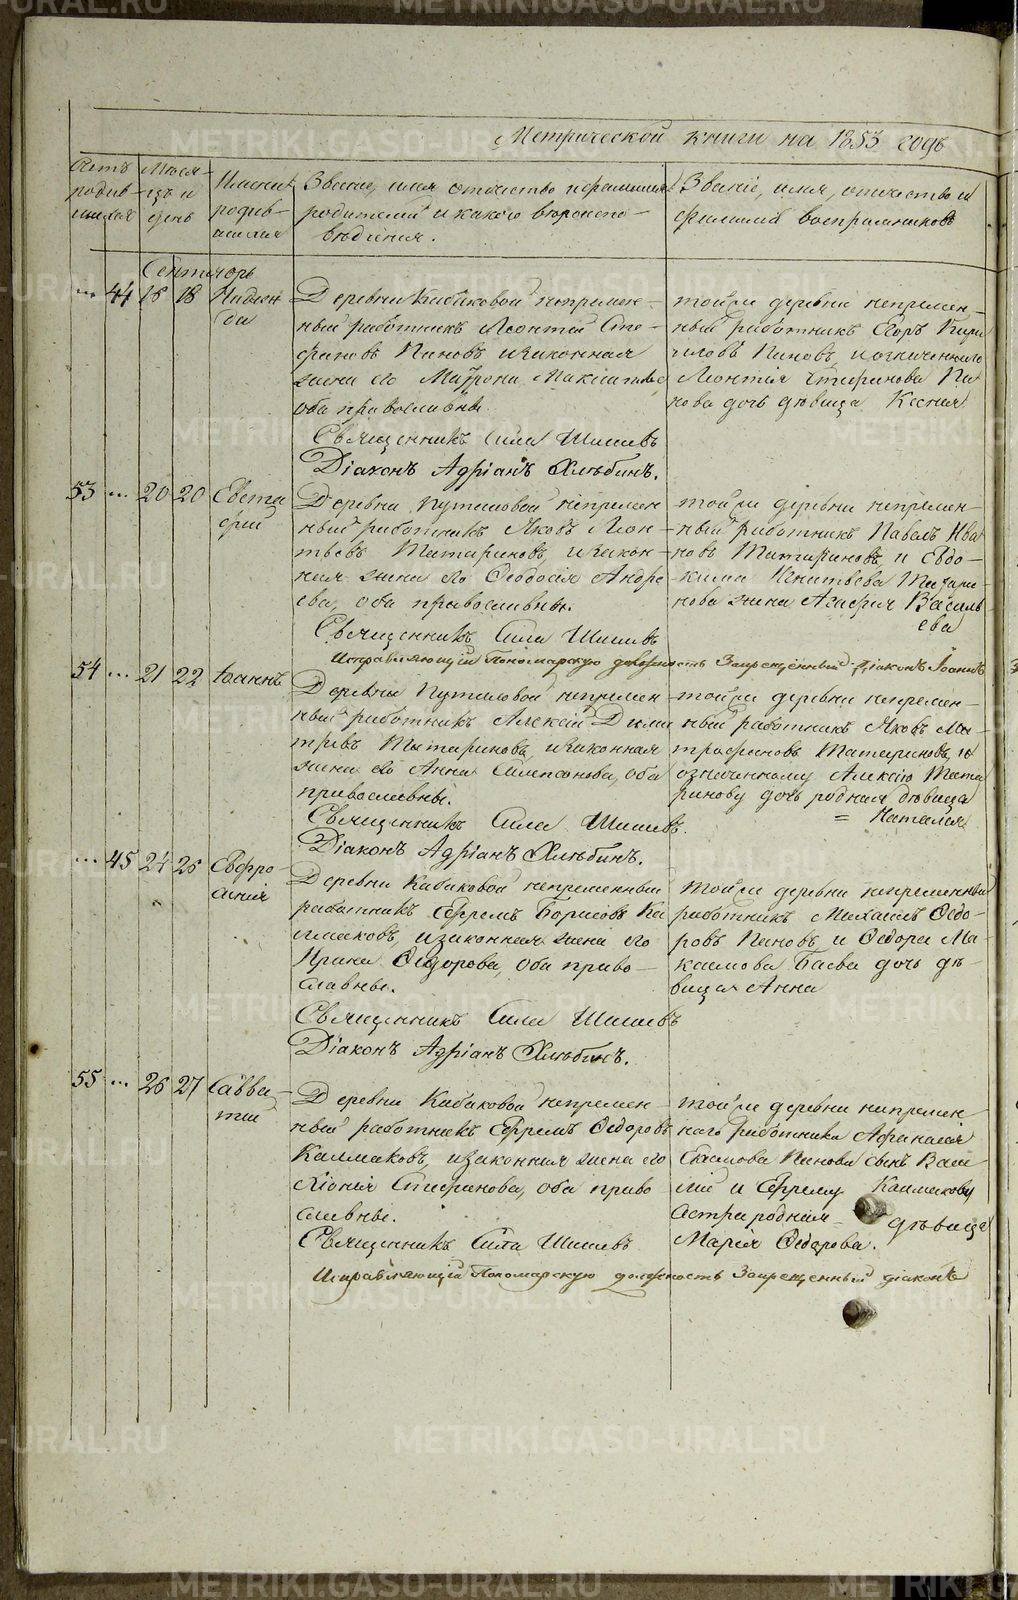 Метрической книги на 1853 годъ
Счетъ родив-шихся
Месяцъ и день
Имена родив-шихся
Званіе, имя, отчество и фамилія
родителей и какого вероиспо-
веданія.
Званіе, имя, отчество и
фамилія воспріемниковъ
Сентябрь
... 44 18 18 Надеж
да
Деревни Кабаковой непремен-
ный работникъ Леонтій Сте-
фановъ Пановъ и законная
жена его Матрона Максимова
оба православные.
Священникъ Сила Шишевъ
Діаконъ Адріанъ Хлѣбинъ.
той же деревни непремен-
ный работникъ Егоръ Кири
ловъ Пановъ, и означеннаго
Леонтія Стефанова Па
нова дочь дѣвица Ксенія
53 ... 20 20 Евста
фій
Деревни Путиловой непремен
ный работникъ Яковъ Леон-
тьевъ Татариновъ и закон-
ная жена его Ѳеодосія Андре
ева, оба православные.
Священникъ Сила Шишевъ
Исправляющій Пономарскую должность Запрещенный діаконъ Іоаннъ
той же деревни непремен-
ный работникъ Павелъ Ива
новъ Татариновъ, и Евдо-
кима Игнатьева Татари-
нова жена Агафія Василь
ева
54 ... 21 22 Іоаннъ
Деревни Путиловой непремен
ный работникъ Алексій Дими
тріевъ Татариновъ, и законная
жена его Анна Симеонова, оба
православные.
Священникъ Сила Шишевъ.
Діаконъ Адріанъ Хлѣбинъ.
той же деревни непремен-
ный работникъ Яковъ Ми-
трофановъ Татариновъ, и
означенному Алексію Тата
ринову дочь родная дѣвица
= Наталія
... 45 24 25 Евфро
синія
Деревни Кабаковой непременный
работникъ Ефремъ Борисовъ Ка
лмаковъ, и законная жена его
Ирина Ѳедорова, оба право-
славные.
Священникъ Сила Шишевъ
Діаконъ Адріанъ Хлѣбинъ.
той же деревни непременный
работникъ Михаилъ Ѳедо-
ровъ Пановъ и Ѳедора Ма-
ксимова Баева дочь дѣ-
вица Анна
55 ... 26 27 Савва
тій
Деревни Кабаковой непремен-
ный работникъ Ефремъ Ѳедоровъ
Калмаковъ, и законная жена его
Хіонія Стефанова, оба право
славные.
Священникъ Сила Шишевъ
Исправляющій Пономарскую должность Запрещенный діаконъ
той же деревни непремен-
наго работника Афанасія
Панова сынъ Васи-
лій и Ефрему Калмакову
сестра родная дѣвица
Марія Ѳедорова.
METRIKI.GASO-URAL.RU